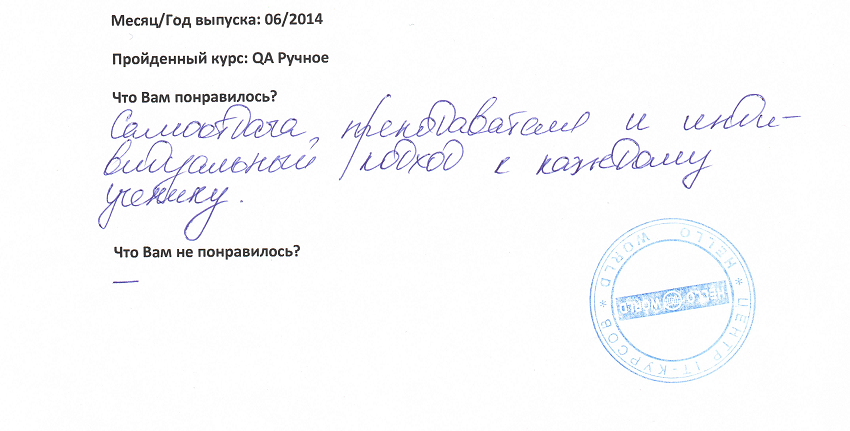 Месяц/Год выпуска: 06/2014
Пройденный курс: QA Ручное
Что Вам понравилось?
Самоотдача преподавателя и инди-
видуальный подход к каждому
ученику.
Что Вам не понравилось?
—
* ЦЕНТР IT-КУРСОВ * HELLO WORLD
HELLO WORLD